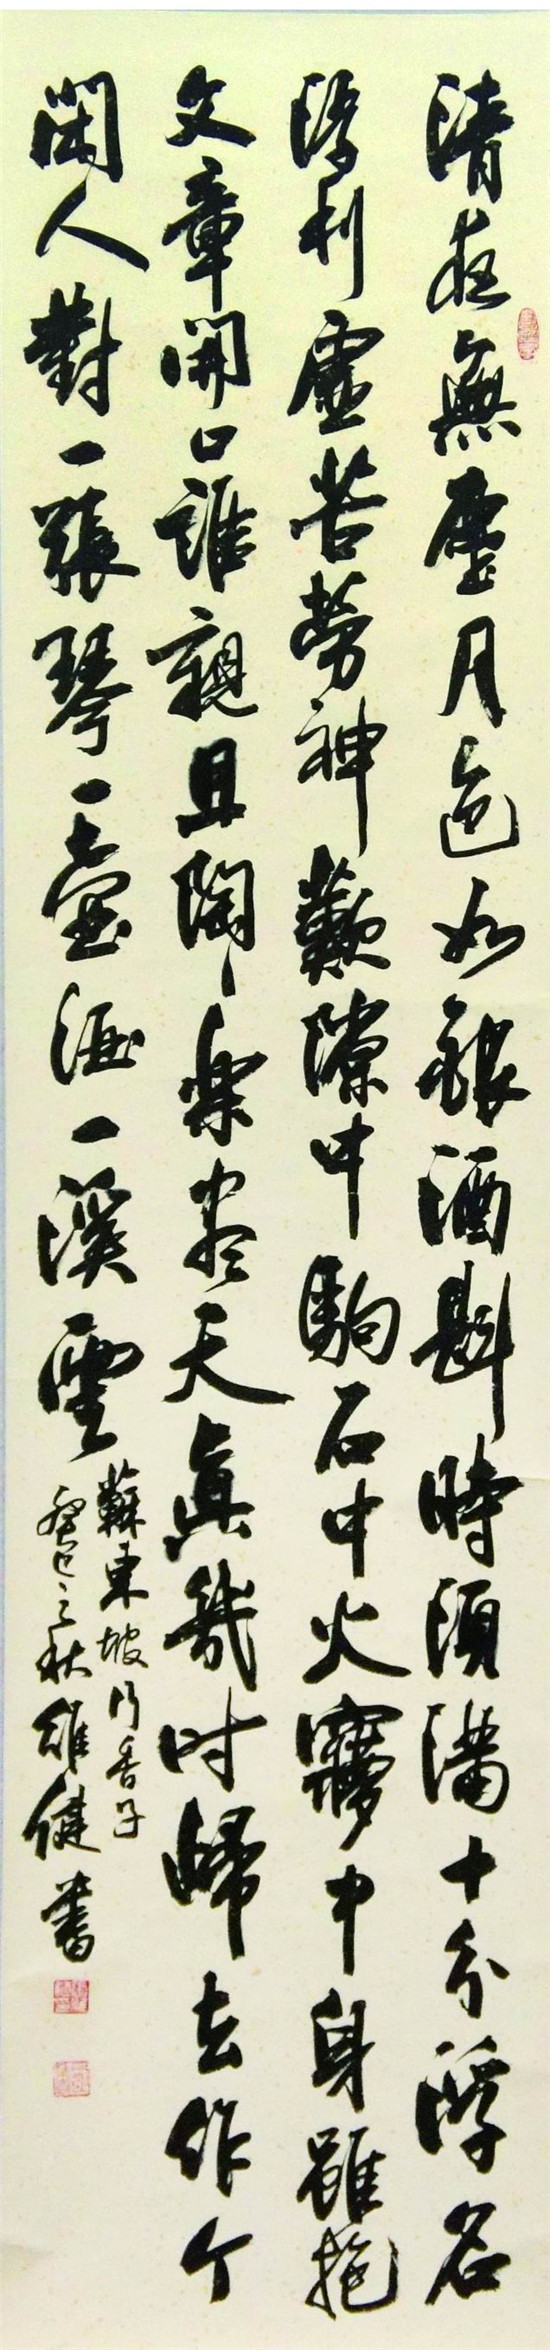 清夜無塵月色如銀酒斟時須滿十分浮名
浮利虛苦勞神歎隙中駒石中火夢中身雖抱
文章開口誰親且陶丶樂尽天真幾时歸去作个
閑人對一張琴一壺酒一溪雲
蘇東坡行香子
癸巳之秋健書